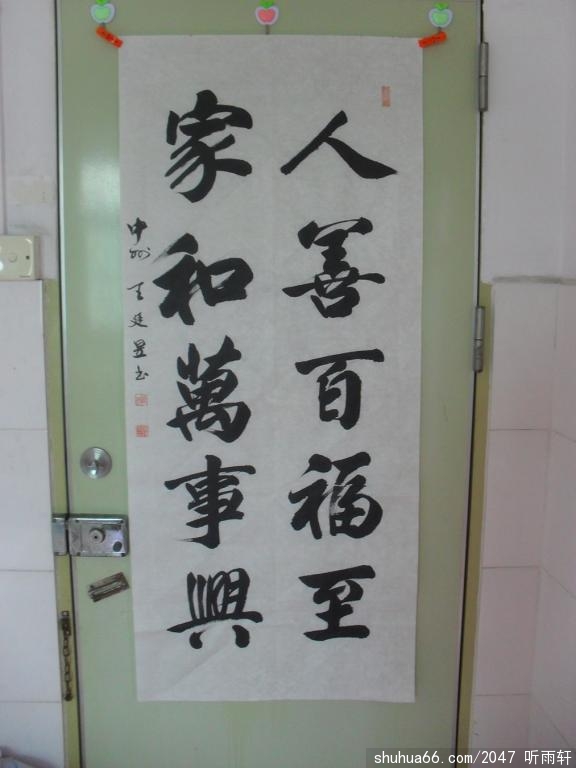 人善百福至
家和萬事興
中州王廷昱书
shuhua66.com/2047 听雨轩